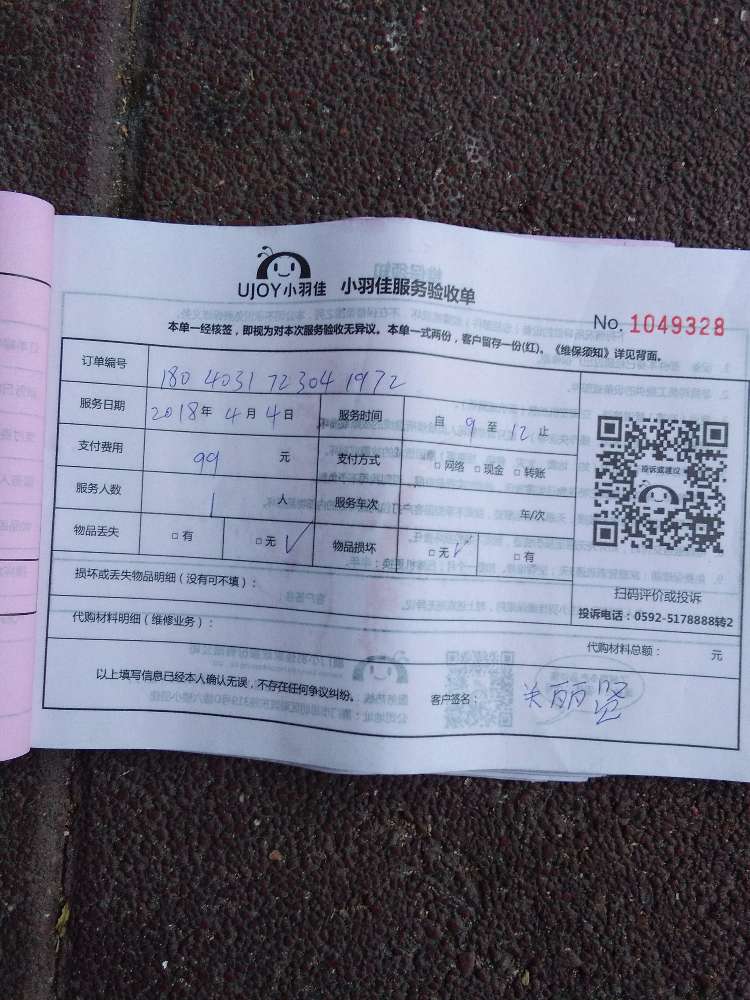 UJOY小羽佳 小羽佳服务验收单
No. 1049328
本单一经核签，即视为对本次服务验收无异议。本单一式两份，客户留存一份(红)。《维保须知》详见背面。
订单编号 1804031723041972
服务日期 2018年 4月 4日 服务时间 自 9 至 12 止
支付费用 99 元 支付方式 □网络 □现金 □转账
服务人数 1 人 服务车次 车/次
物品丢失 □有 □无 √ 物品损坏 □无 √ □有
投诉或建议
扫码评价或投诉
投诉电话：0592-5178888转2
损坏或丢失物品明细（没有可不填）：
代购材料明细（维修业务）： 代购材料总额： 元
以上填写信息已经本人确认无误，不存在任何争议纠纷。 客户签名： 关丽贤